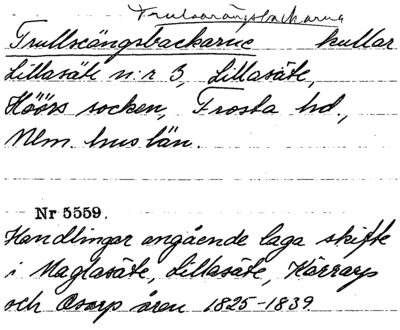 Trulsaängsbackarna
Trullseängsbackarne kullar
Lillasäte n:r 3, Lillasäte,
Höörs socken, Frosta hd.,
Mlm. hus län.
Nr 5559.
Handlingar angående laga skifte
i Maglasäte, Lillasäte, Kärrarp
och Osarp åren 1825-1839.